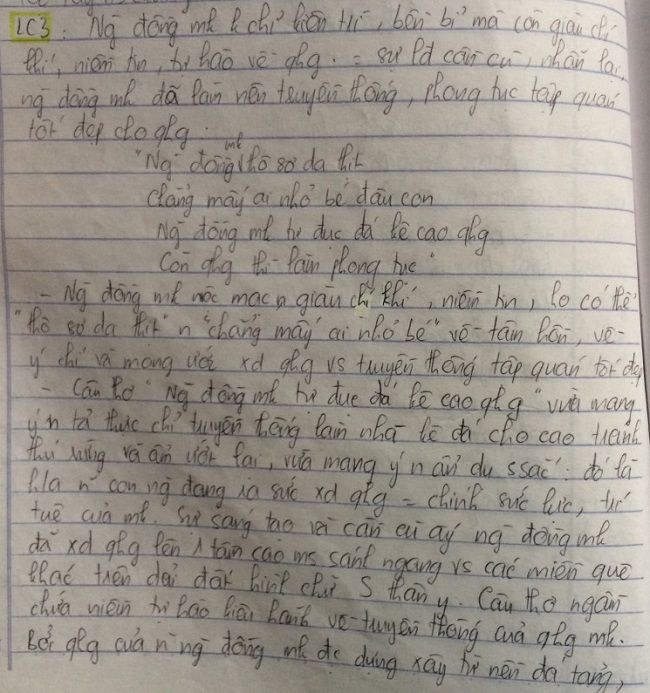 LC3: Ng đồng mk k chỉ kiên trì, bền bỉ mà còn giàu chí
khí, niềm tin, tự hào về qhg. = sự lđ cần cù, nhẫn lại,
ng đồng mk đã làm nên truyền thống, phong tục tập quán
tốt đẹp cho qhg.
"Ng đồng mk thô sơ da thịt
Chẳng mấy ai nhỏ bé đâu con
Ng đồng mk tự đục đá kê cao qhg
Còn qhg thì làm phong tục"
- Ng đồng mk mộc mạc n giàu chí khí, niềm tin, họ có thể
"thô sơ da thịt" n "chẳng mấy ai nhỏ bé" về tâm hồn, về
ý chí và mong ước xd qhg vs truyền thống tập quán tốt đẹp
- Câu thơ "Ng đồng mk tự đục đá kê cao qhg" vừa mang
ý n tả thực chỉ truyền thống làm nhà kê đá cho cao tránh
thú rừng và ẩm ướt lại, vừa mang ý n ẩn dụ ssắc: đó là
h/a n con ng đang ra sức xd qhg = chính sức lực, trí
tuệ của mk. Sự sáng tạo và cần cù ấy ng đồng mk
đã xd qhg lên 1 tầm cao ms sánh ngang vs các miền quê
khác trên dải đất hình chữ S thân y. Câu thơ ngần
chứa niềm tự hào kiêu hãnh về truyền thống của qhg mk.
Bởi qhg của n ng đồng mk đc dựng xây từ nền đá tảng,